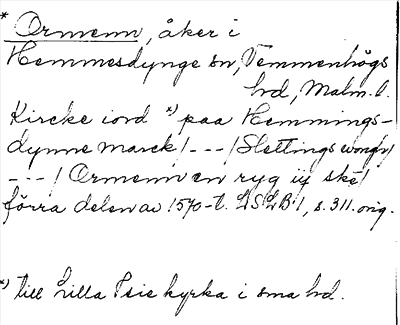 * Ormenn, åker i
Hemmesdynge sn, Vemmenhögs
hd, Malm. l.
Kircke iord *) paa Hemmings-
dynne marck / - - - / Slettings wong /
- - - / Ormenn en ryg iij ske /
förra delen av 1570-t. LSLB 1, s. 311. orig.
*) till Lilla Isie kyrka i sma hd.